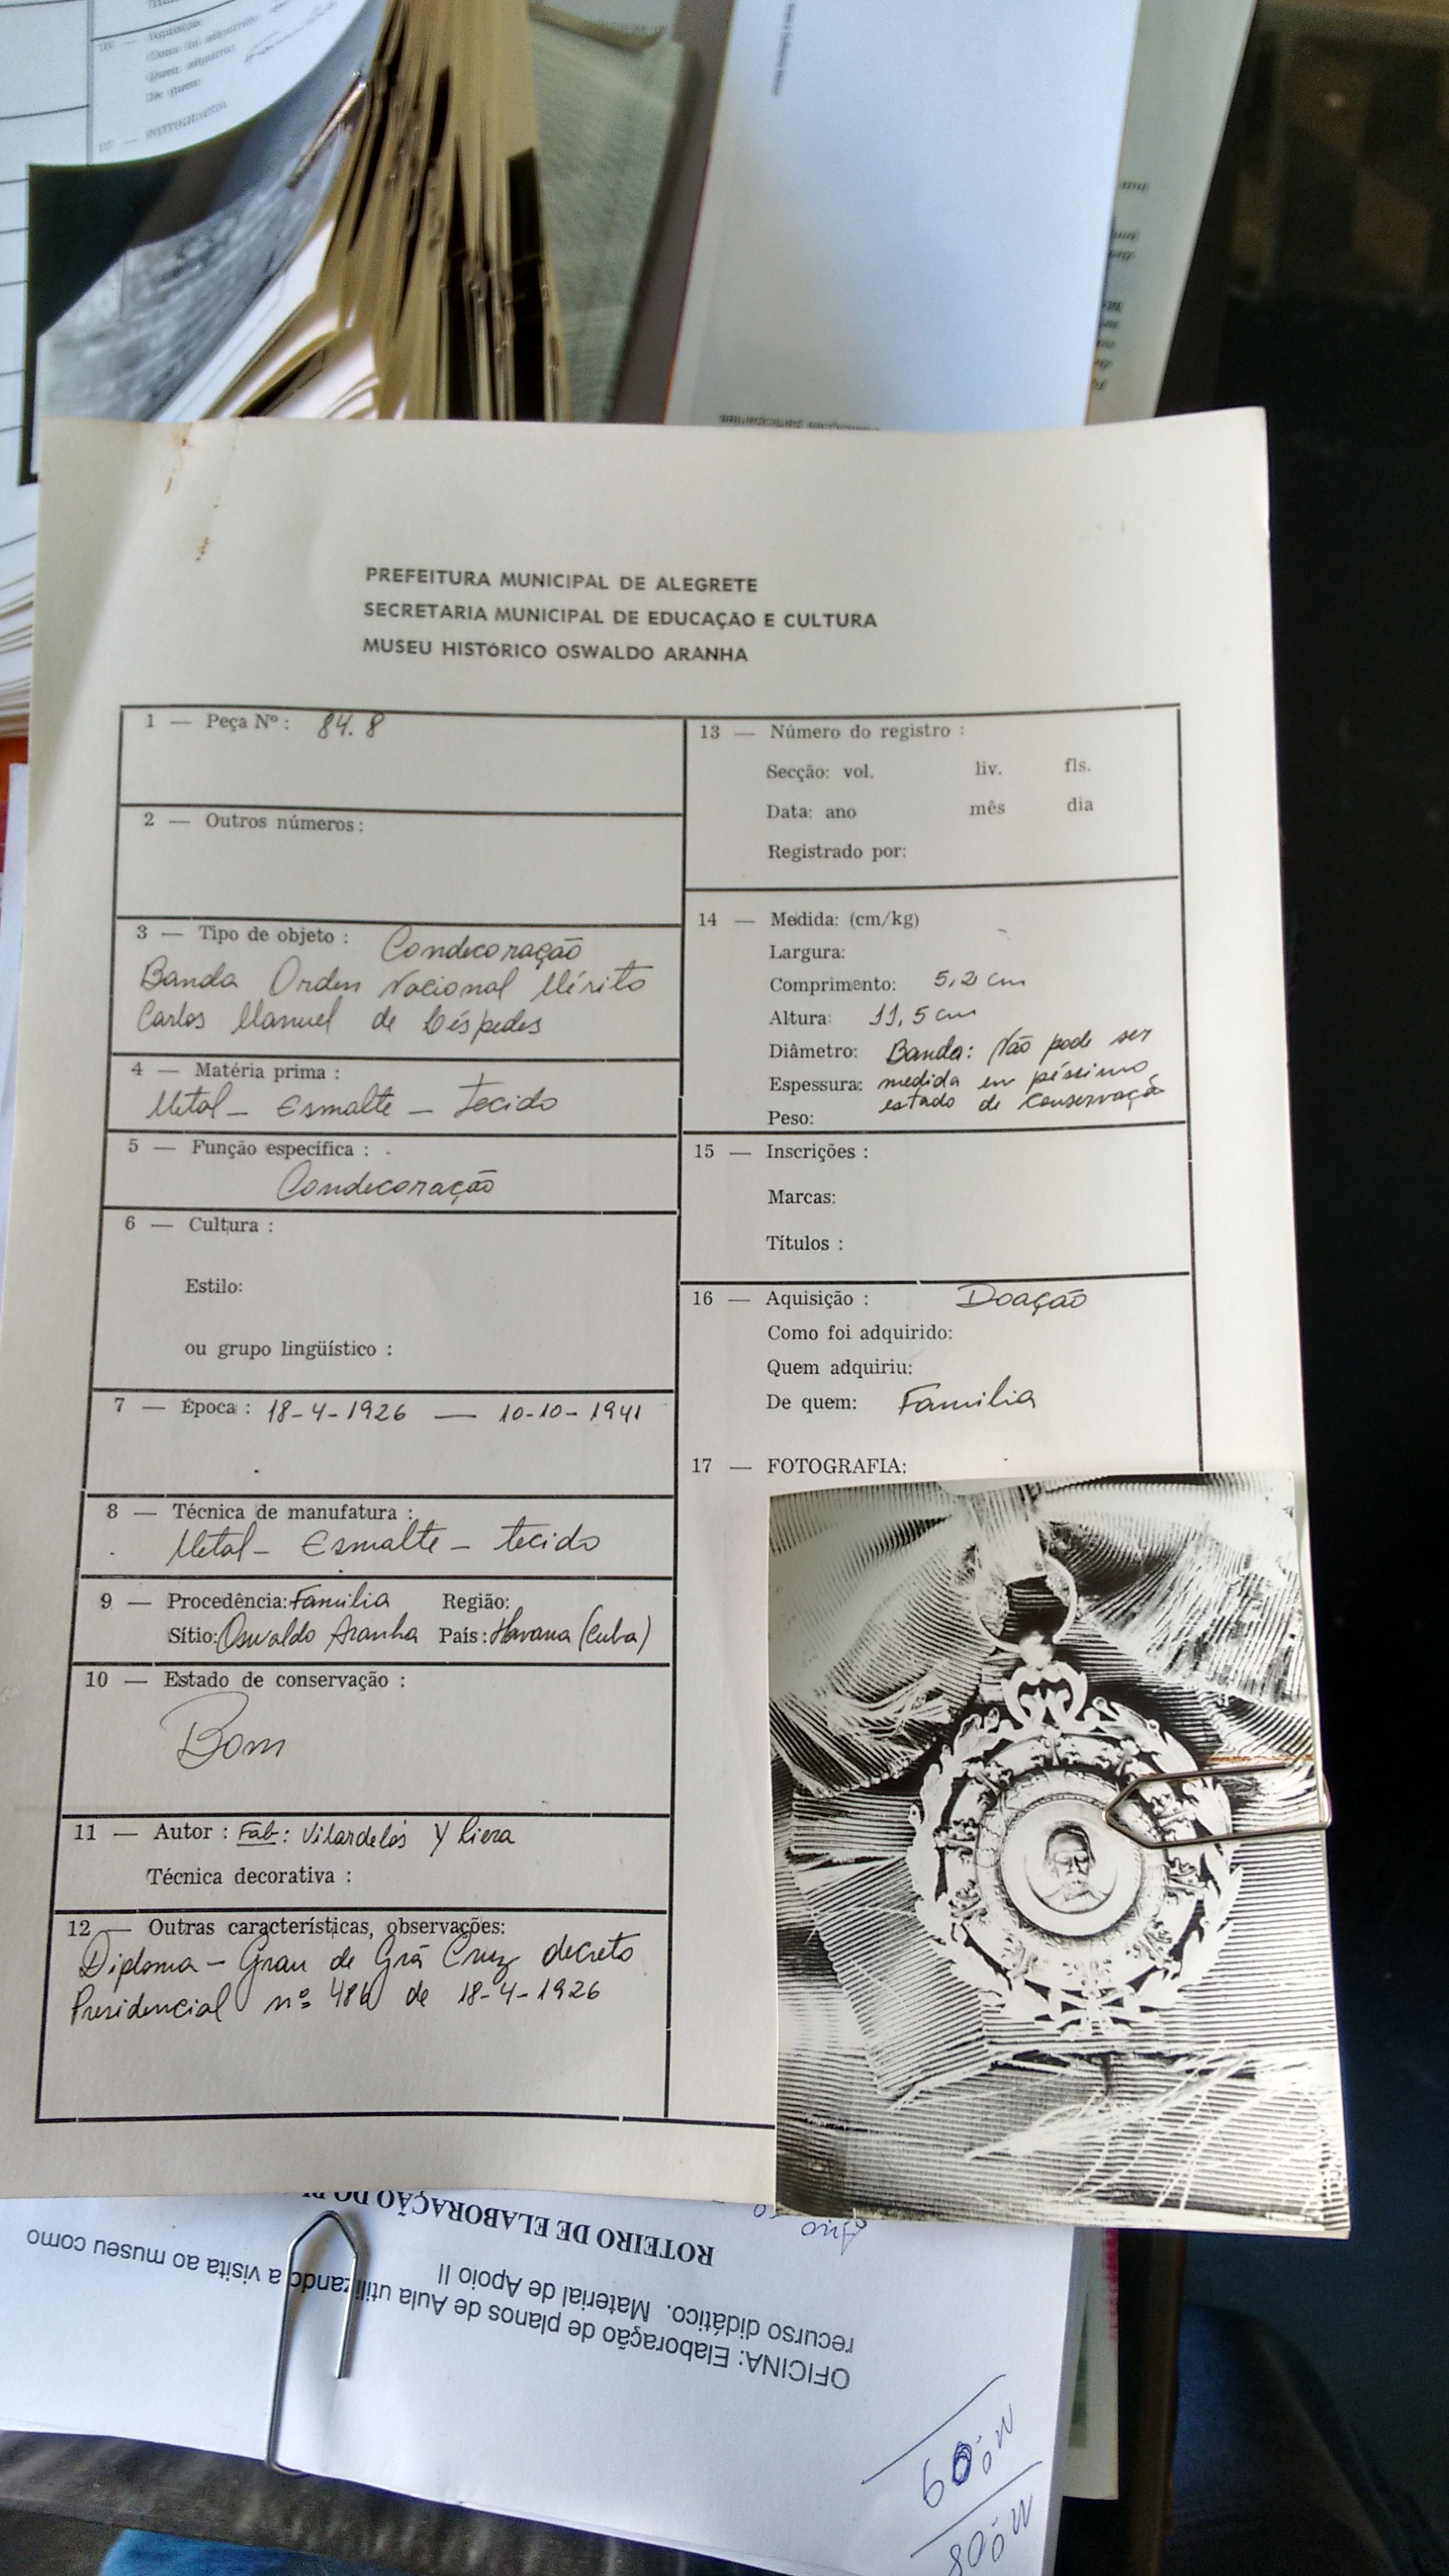 PREFEITURA MUNICIPAL DE ALEGRETE
SECRETARIA MUNICIPAL DE EDUCAÇÃO E CULTURA
MUSEU HISTÓRICO OSWALDO ARANHA
1 — Peça Nº: 84.8
2 — Outros números:
3 — Tipo de objeto: Condecoração
Banda Orden Nacional Mérito
Carlos Manuel de Céspedes
4 — Matéria prima:
Metal — Esmalte — Tecido
5 — Função específica:
Condecoração
6 — Cultura:
Estilo:
ou grupo lingüístico:
7 — Época: 18-4-1926 — 10-10-1941
8 — Técnica de manufatura:
Metal — Esmalte — tecido
9 — Procedência: Família Região:
Sítio: Oswaldo Aranha País: Havana (Cuba)
10 — Estado de conservação:
Bom
11 — Autor: Fab: Vilardelós Y Riera
Técnica decorativa:
12 — Outras características, observações:
Diploma — Grau de Grã Cruz decreto
Presidencial nº de 18-4-1926
13 — Número do registro:
Secção: vol. liv. fls.
Data: ano mês dia
Registrado por:
14 — Medida: (cm/kg)
Largura:
Comprimento: 5,2 cm
Altura: 11,5 cm
Diâmetro: Banda: Não pode ser
Espessura: medida em péssimo
Peso: estado de conservaçã
15 — Inscrições:
Marcas:
Títulos:
16 — Aquisição: Doação
Como foi adquirido:
Quem adquiriu:
De quem: Família
17 — FOTOGRAFIA:
ROTEIRO DE ELABORAÇÃO DO
OFICINA: Elaboração de planos de Aula utilizando a visita ao museu como
recurso didático. Material de Apoio II